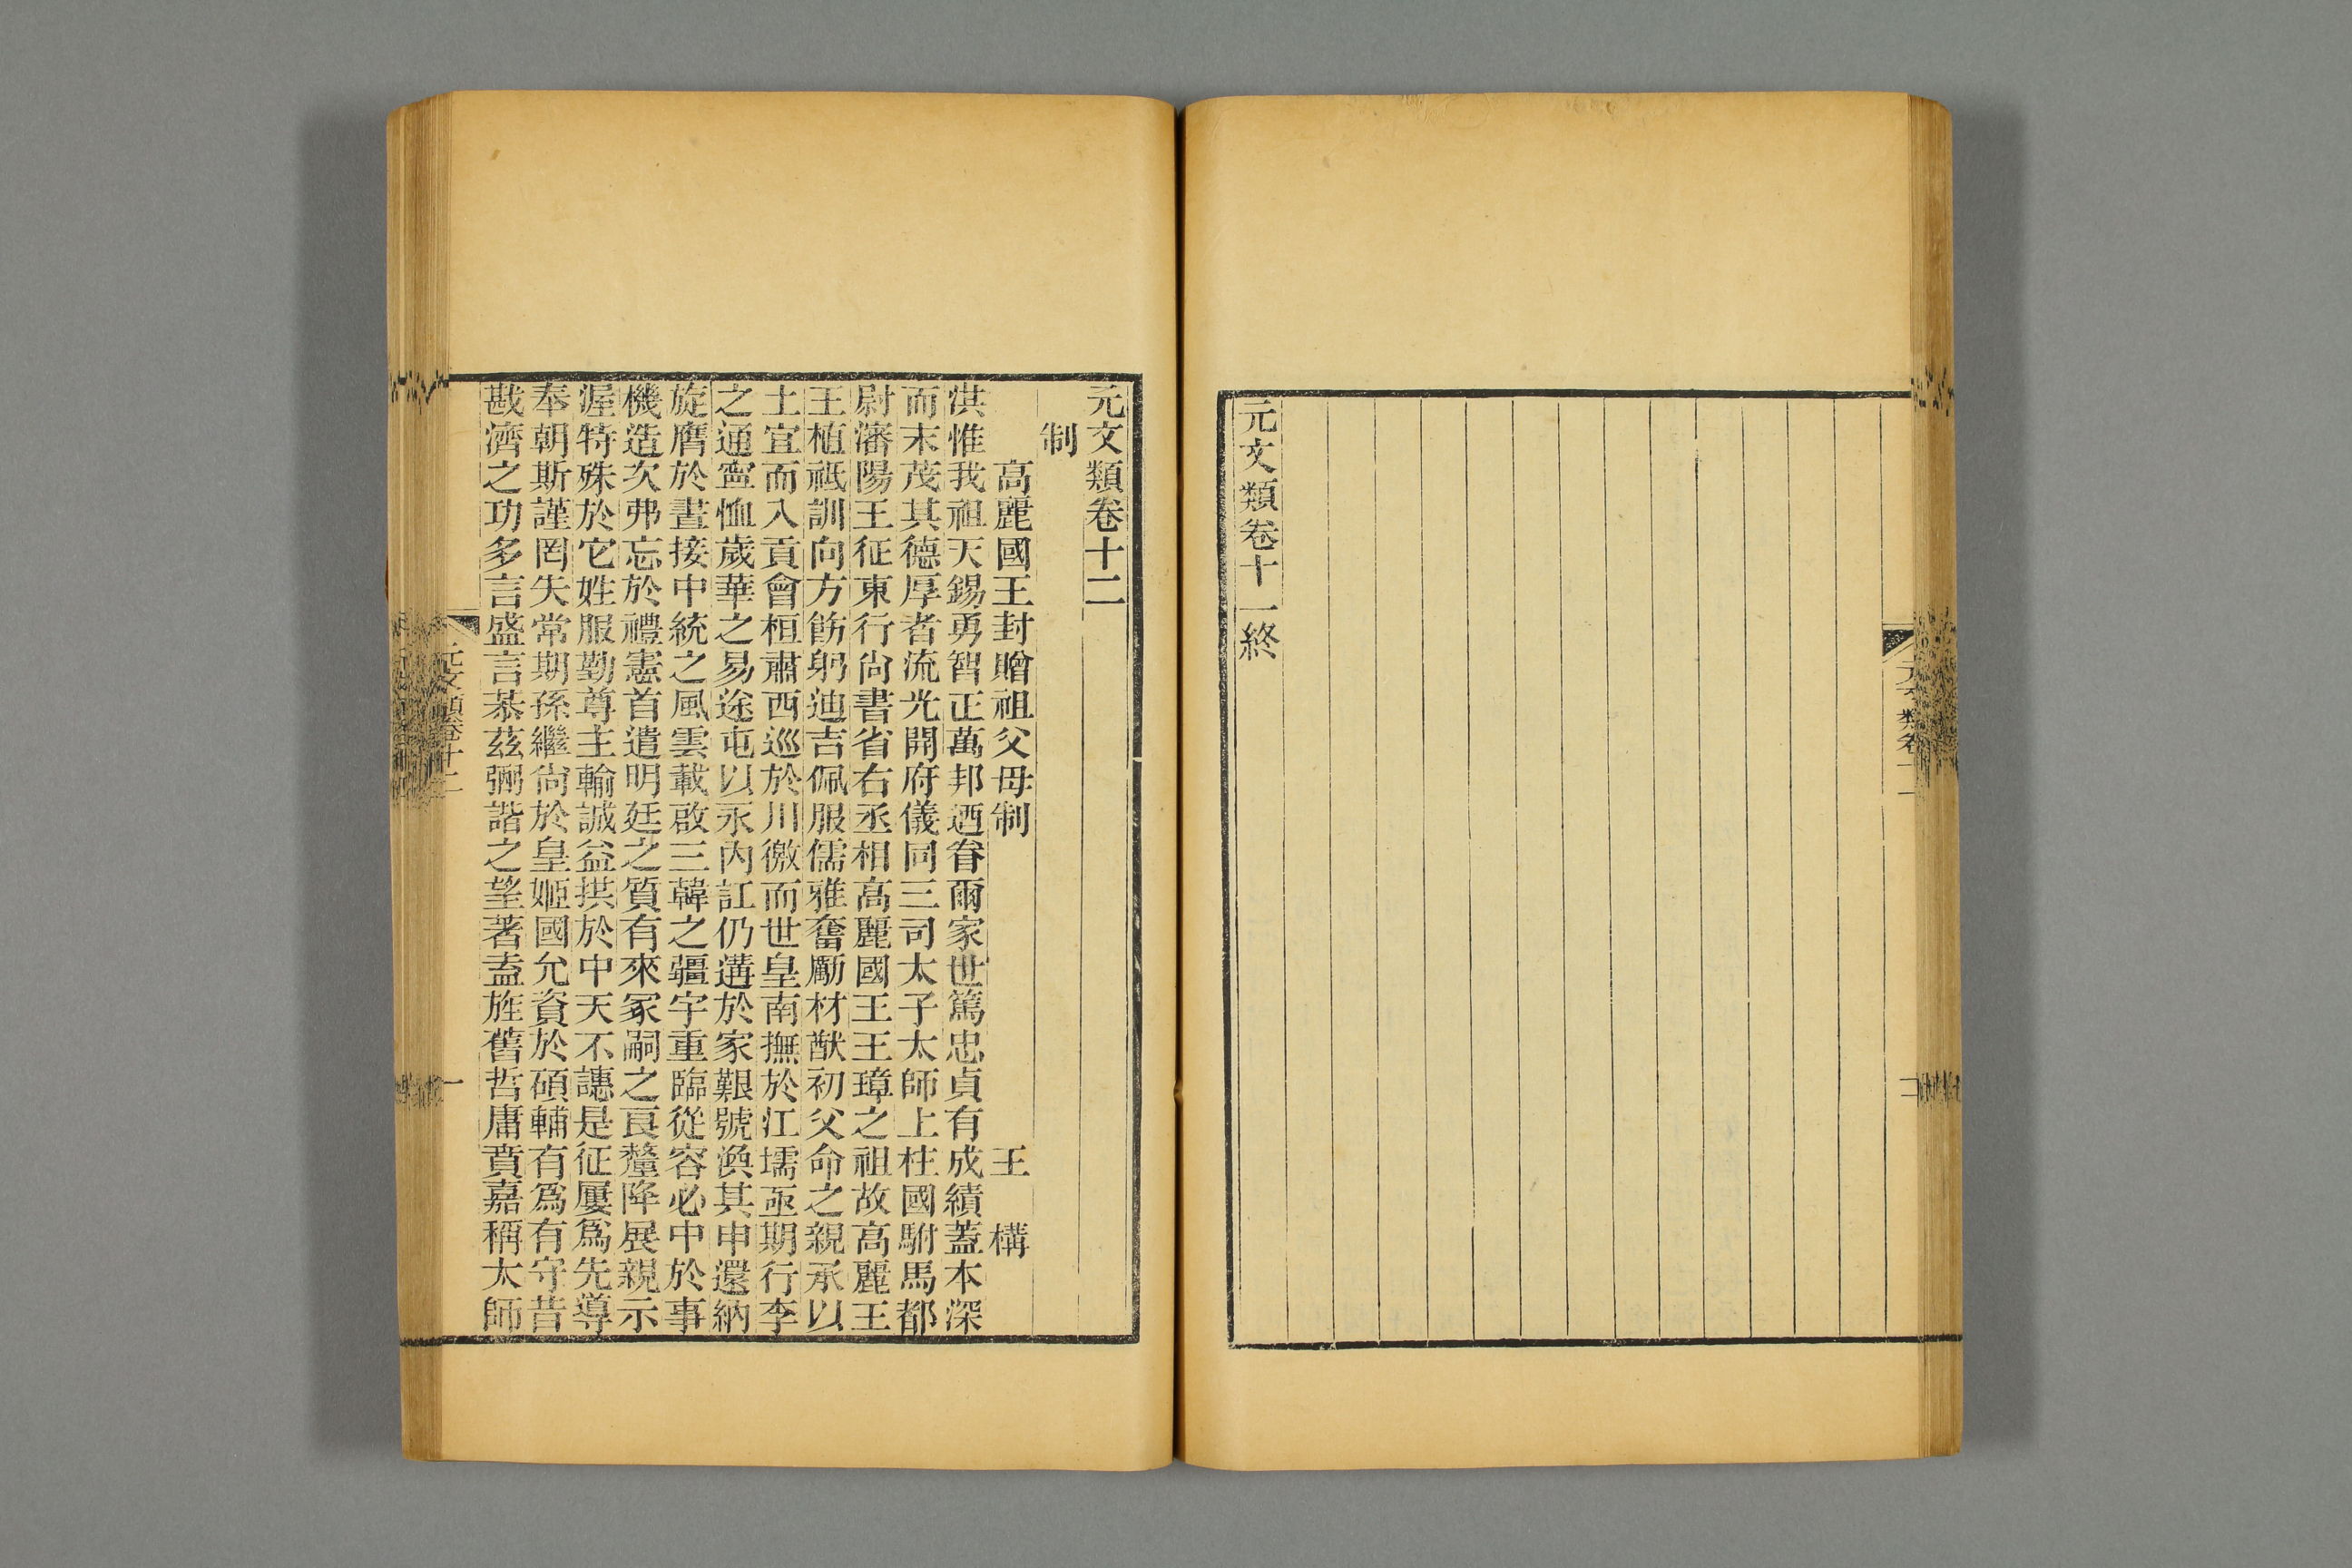 元文類卷十一終
元文類卷十二
制
高麗國王封贈祖父母制 王構
洪惟我祖天錫勇智正萬邦迺眷爾家世篤忠貞有成績蓋本深
而末茂其德厚者流光開府儀同三司太子太師上柱國駙馬都
尉瀋陽王征東行尙書省右丞相高麗國王王璋之祖故高麗王
王植祗訓向方飭躬迪吉佩服儒雅奮勵材猷初父命之親承以
土宜而入貢會桓肅西巡於川徼而世皇南撫於江壖亟期行李
之通寧恤歲華之易途屯以永內訌仍遘於家艱號渙其申還納
旋膺於晝接中統之風雲載啟三韓之疆宇重臨從容必中於事
機造次弗忘於禮憲首遣明廷之質有來冢嗣之良釐降展親示
渥特殊於它姓服勤尊主輸誠益拱於中天不譓是征屢爲先導
奉朝斯謹罔失常期孫繼尙於皇姬國允資於碩輔有爲有守昔
戡濟之功多言盛言恭茲弼諧之望著盍旌舊哲庸賁嘉稱太師
元文類卷十二
一